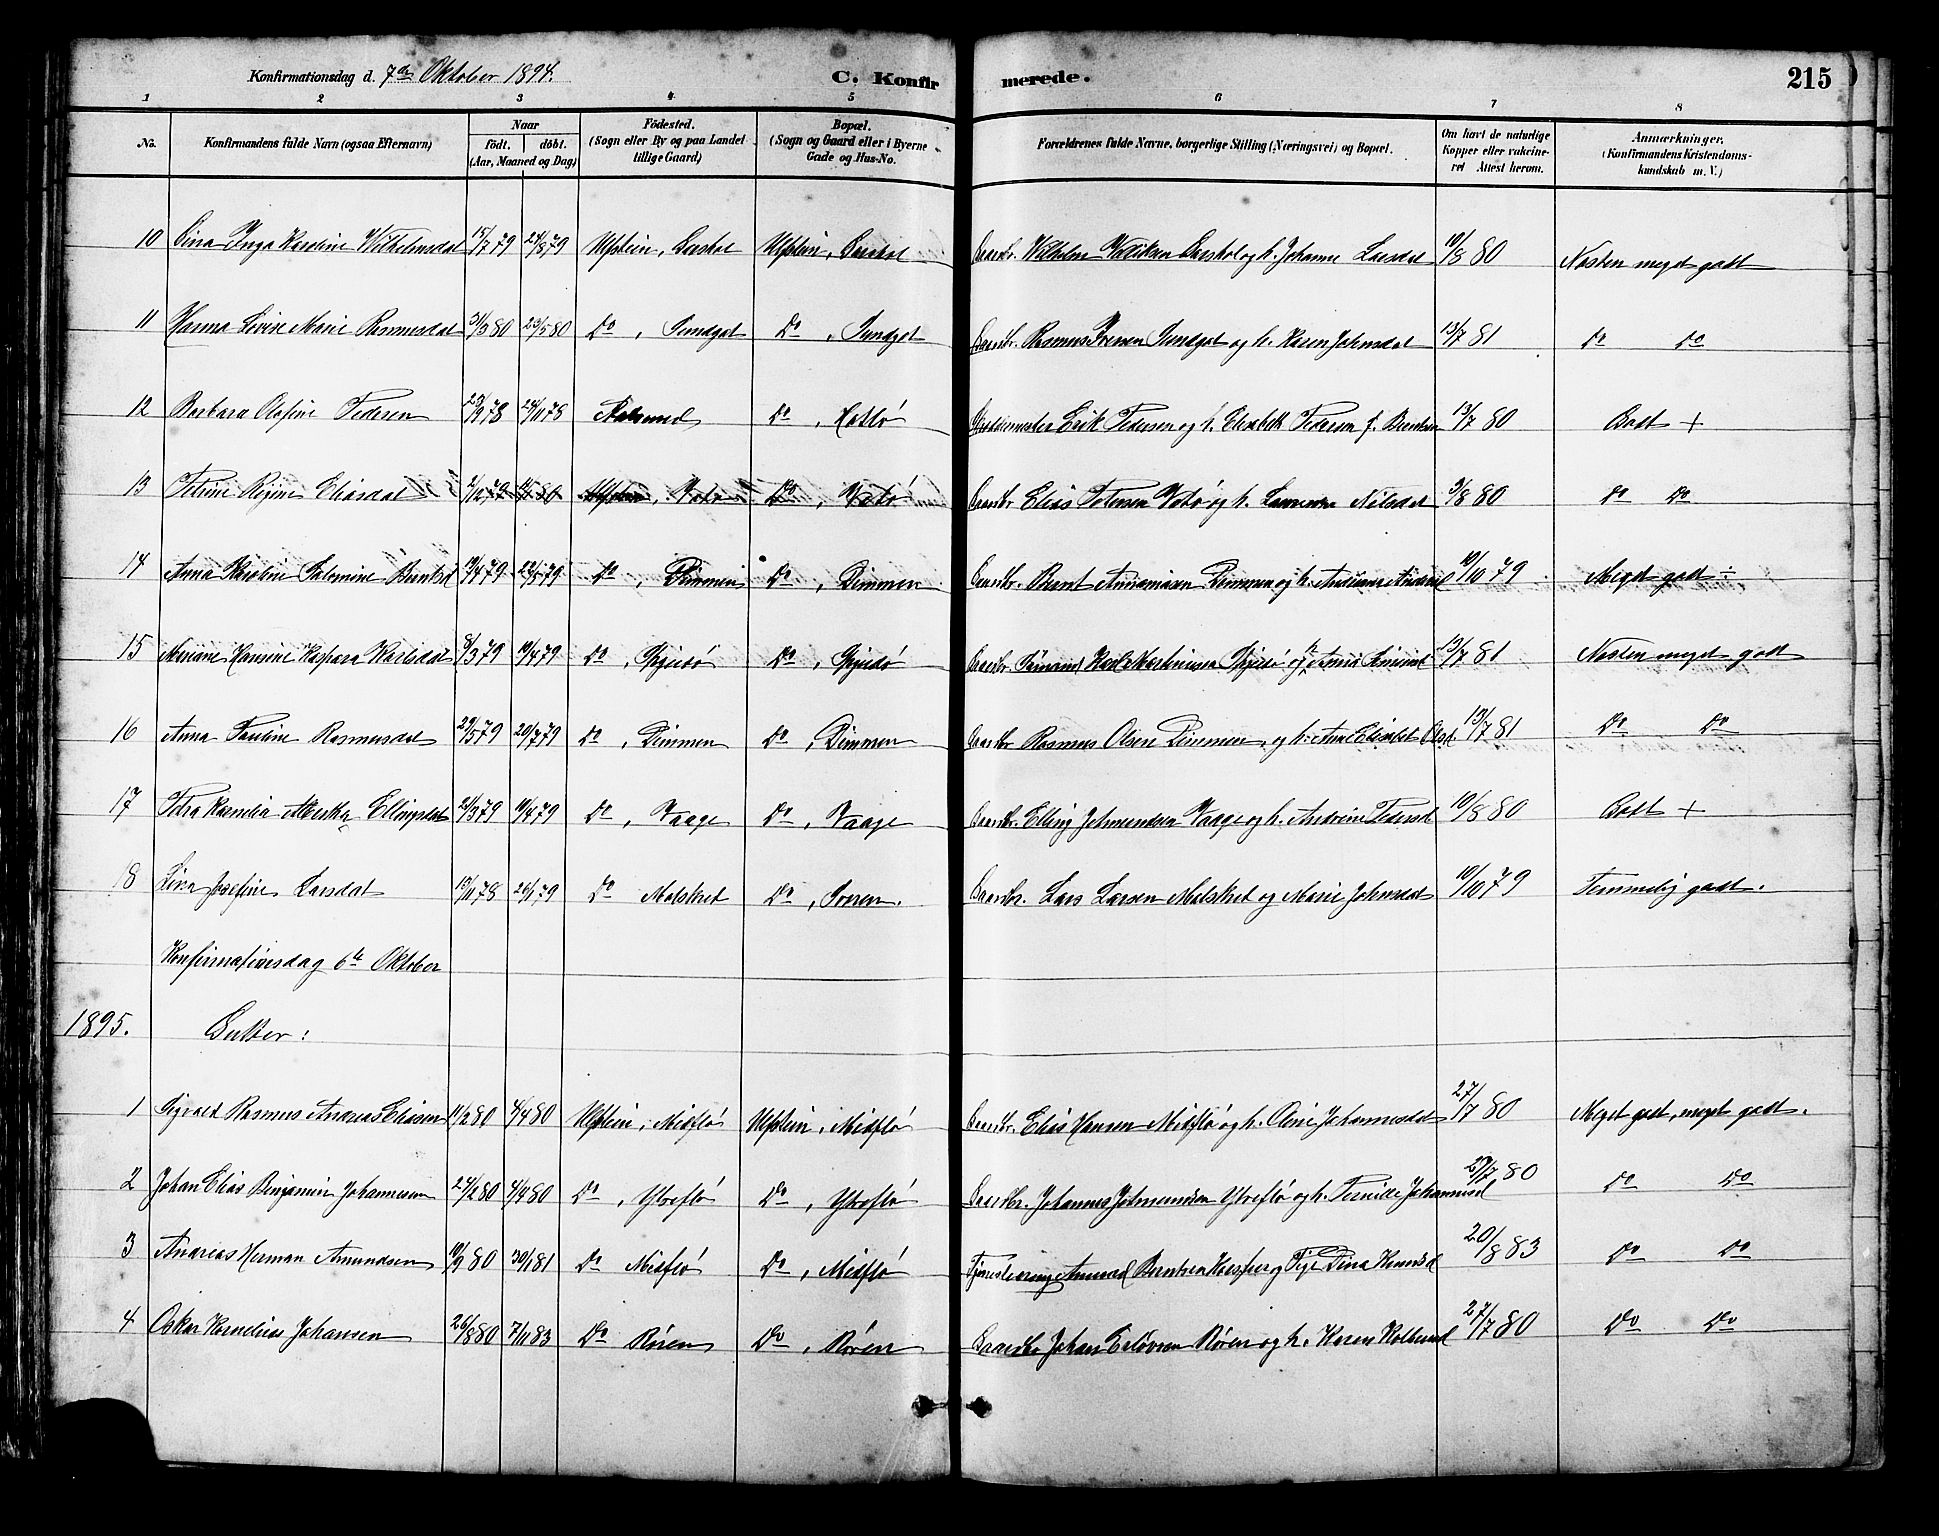 Konfirmationsdag d. 7de Oktober 1894. C. Konfirmerede. 215
1 2 3 4 5 6 7 8
No. Konfirmandens fulde Navn (ogsaa Efternavn) Naar födt. döbt. (Aar, Maaned og Dag) Födested. (Sogn eller By og paa Landet tillige Gaard) Bopæl. (Sogn og Gaard eller i Byerne Gade og Hus-No. Forældrenes fulde Navne, borgerlige Stilling (Næringsvei) og Bopæl. Om havt de naturlige Kopper eller vakcineret Attest herom. Anmærkninger. (Konfirmandens Kristendomskundskab m. V.)
10 Sina Inga Karoline Vilhelmsdat 15/7 79 24/8 79 Ulstein, Ulstein, Gaardbr. Vilhelm og h. Johanne Larsdat 10/8 80 Næsten meget godt
11 Hanna Lovise Marie Rasmusdat 31/3 80 23/5 80 Do, Sundgot Do, Sundgot Gaardbr. Rasmus Iversen Sundgot og h. Karen Johnsdat 13/7 81 do do
12 Barbara Olufine Pedersen 29/9 78 24/11 78 Aalesund Do, Hatlø Erik Pedersen og h. Elisabeth Pedersen f. Berntsen 13/7 80 Godt +
13 Petrine Regine Eliasdat 2/12 79 80 Ulstein, Vatø Do, Vatø Gaardbr Elias Petersen Vatø og h. Laurense Nilsdat 3/8 80 do do
14 Anna Karoline Salomine Berntsd 19/4 79 22/5 79 Do, Dimmen Do, Dimmen Gaardbr. Bernt Dimmen og h. Andriane 10/10 79 Meget godt ÷
15 Mariane Hansine Kaspara Karlsdat 8/3 79 19/4 79 Do, Skjeidø Do, Skjeidø Karl Martinusen Skjeidø og h. Anna 13/7 81 Næsten meget godt
16 Anna Pauline Rasmusdat 29/5 79 20/7 79 Do, Dimmen Do, Dimmen Gaardbr Rasmus Olsen Dimmen og h. Ane Elisabet Olsd. 13/7 81 Do Do
17 Petra Kornelia Ellingsdat 21/3 79 19/4 79 Do, Vaage Do, Vaage Gaardbr. Elling Johnsen Vaage og h. Andrine Pedersd 10/8 80 Godt +
18 Lina Josefine Larsdat 15/11 78 26/1 79 Do Malskret Do, Gaardbr. Lars Larsen Malskret og Marie Johnsdat 10/10 79 Temmelig godt.
Konfirmationsdag 6te Oktober
1895. Gutter:
1 Sigvald Rasmus Andreas Eliasen 11/2 80 4/4 80 Ulstein, Midflø Ulstein, Midflø Gaardbr. Elias Hansen Midflø og h. Oline Johannesdat 27/7 80 Meget godt, meget godt.
2 Johan Elias Benjamin Johannesen 24/2 80 4/4 80 Do, Ytreflø Do, Ytreflø Gaardbr. Johannes Ytreflø og h. Pernille Johannesd 27/7 80 Do Do
3 Andreas Herman Amundsen 10/9 80 30/1 81 Do Midflø Do, Midflø Amund Berntsen og Pige Dina Knutsd 20/8 83 Do Do
4 Oskar Kornelius Johansen 26/8 80 7/11 83 Do Røren Do, Røren Gaardbr Johan Røren og h. Karen 27/7 80 Do Do